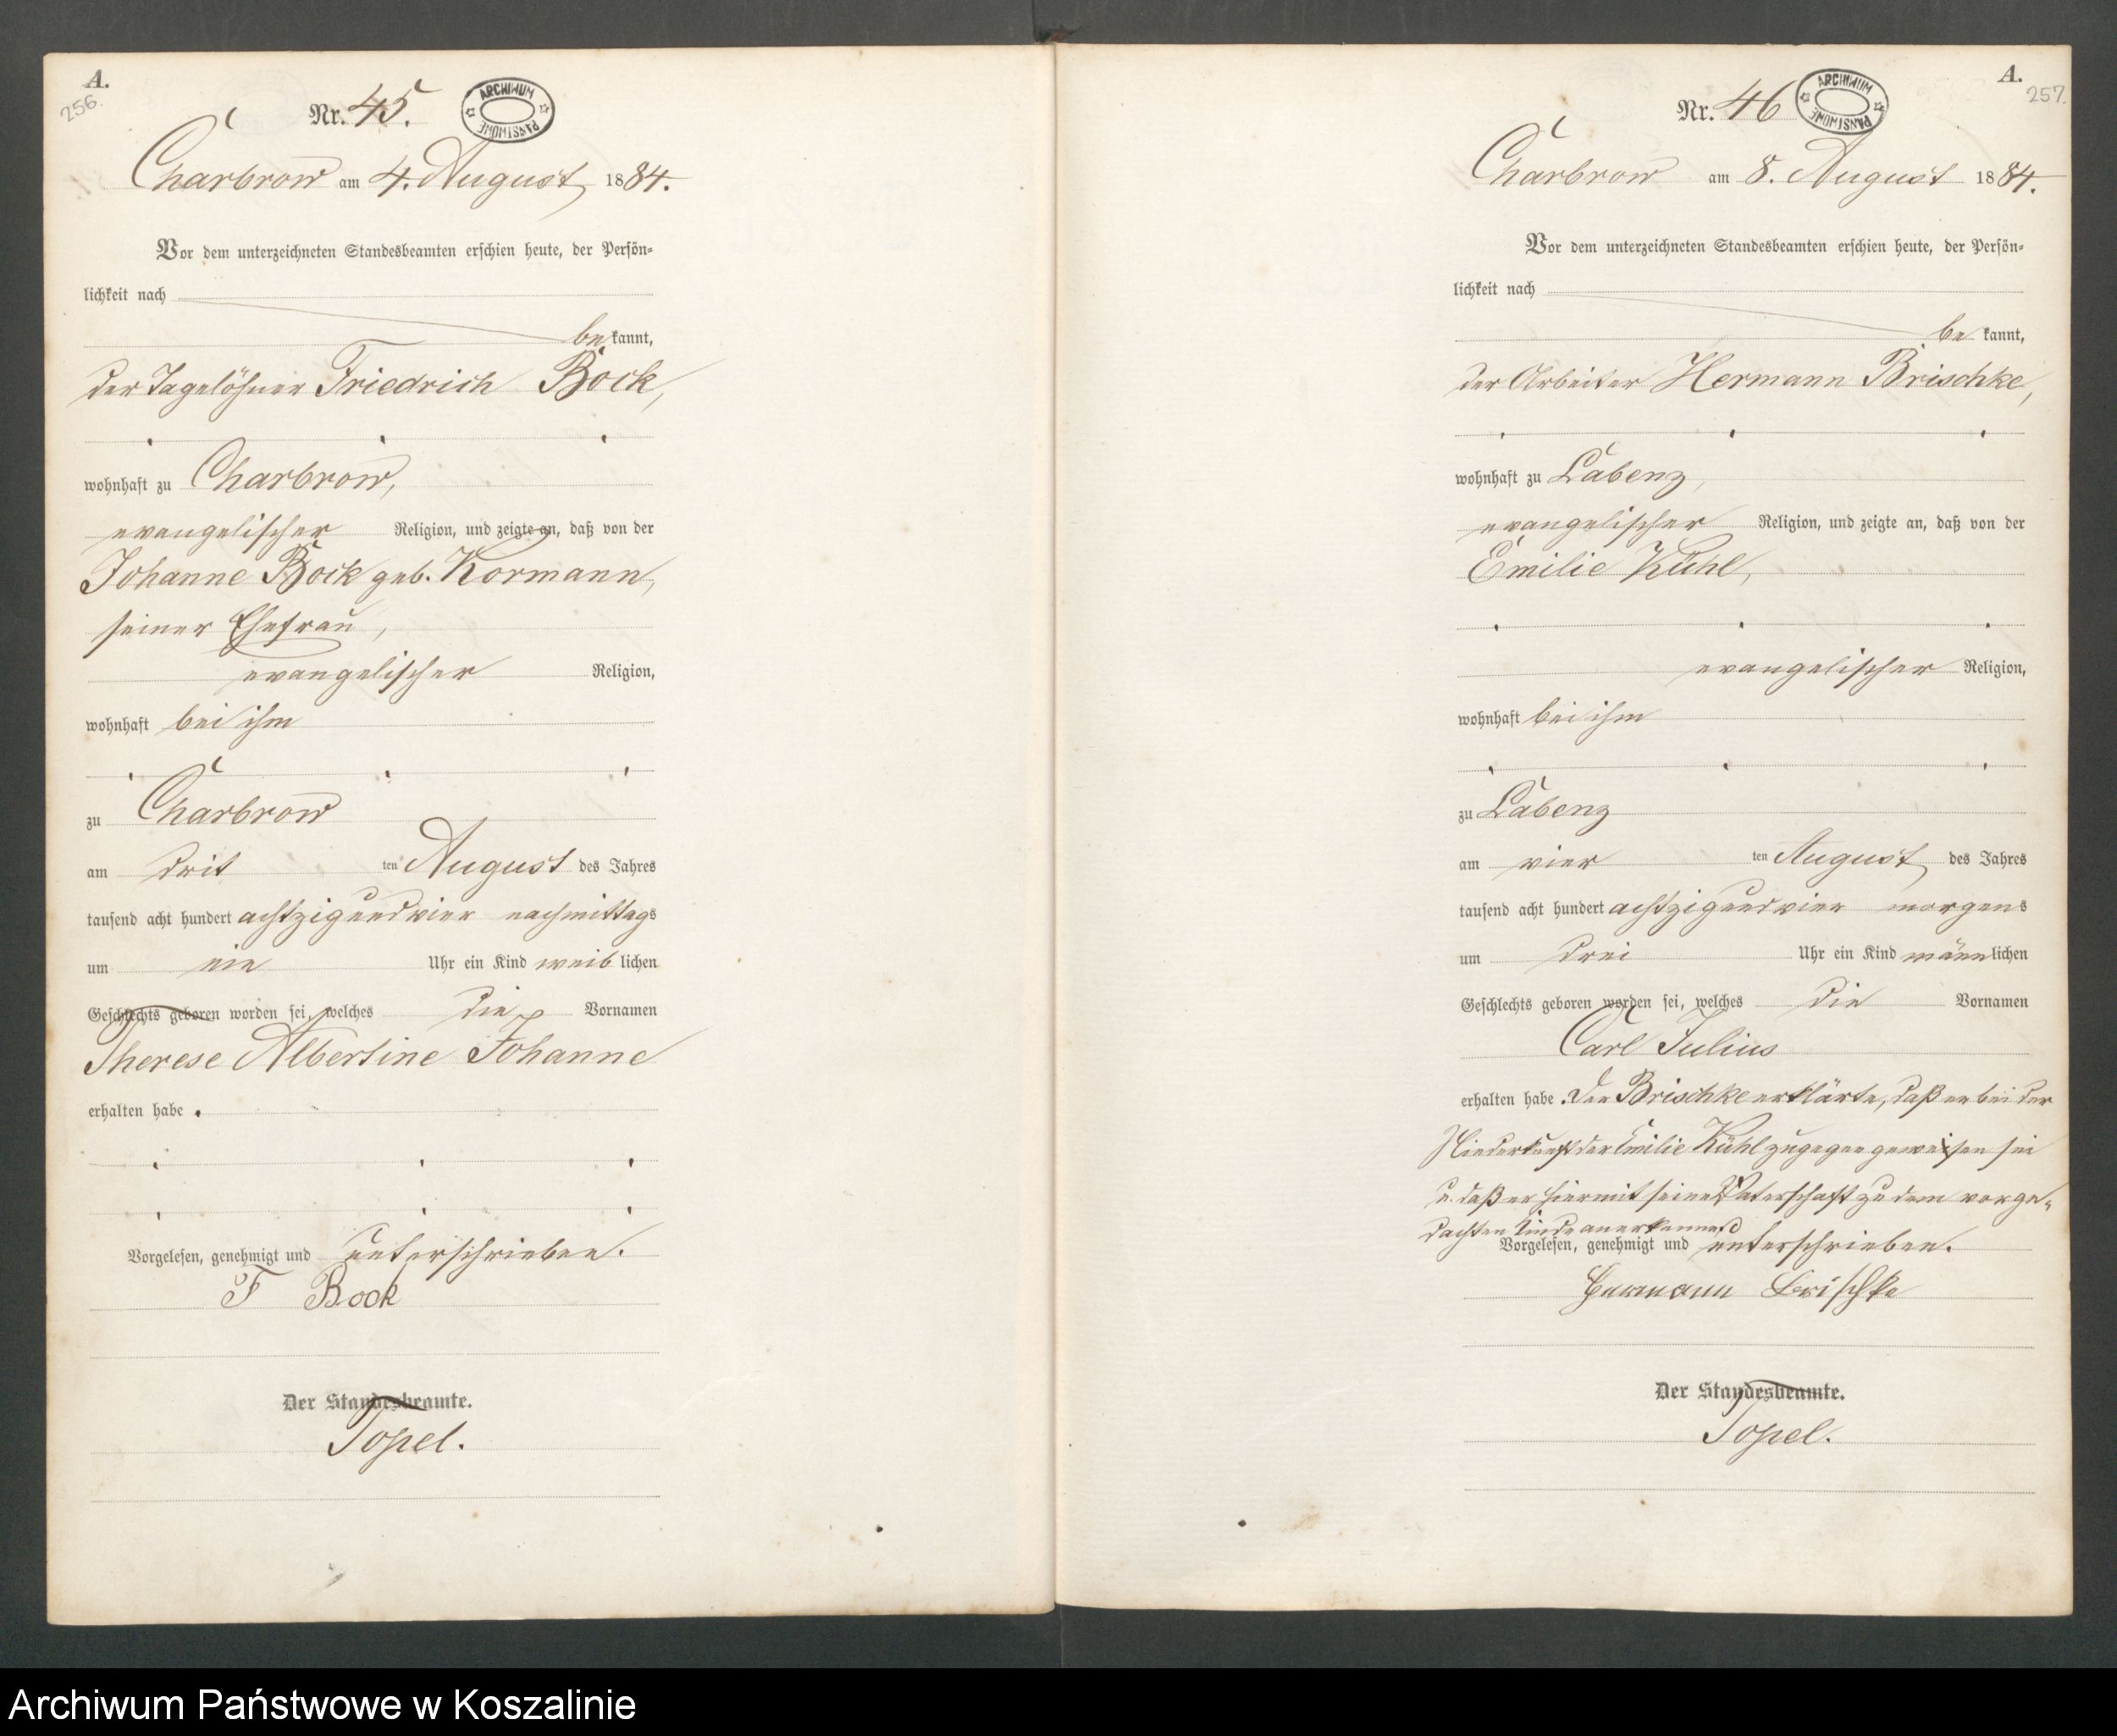 A.
256.
Nr. 45.
ARCHIWUM PAŃSTWOWE
Charbrow am 4. August 1884.
Vor dem unterzeichneten Standesbeamten erschien heute, der Persön-
lichkeit nach
bekannt,
der Tagelöhner Friedrich Bock,
wohnhaft zu Charbrow,
evangelischer Religion, und zeigte an, daß von der
Johanne Bock geb. Kormann,
seiner Ehefrau,
evangelischer Religion,
wohnhaft bei ihm
zu Charbrow
am drit ten August des Jahres
tausend acht hundert achtzig und vier nachmittags
um ein Uhr ein Kind weiblichen
Geschlechts geboren worden sei, welches die Vornamen
Therese Albertine Johanne
erhalten habe.
Vorgelesen, genehmigt und unterschrieben.
F Bock
Der Standesbeamte.
Topel.
A.
257.
Nr. 46
ARCHIWUM PAŃSTWOWE
Charbrow am 8. August 1884.
Vor dem unterzeichneten Standesbeamten erschien heute, der Persön-
lichkeit nach
bekannt,
der Arbeiter Hermann Brischke,
wohnhaft zu Labenz,
evangelischer Religion, und zeigte an, daß von der
Emilie Kühl,
evangelischer Religion,
wohnhaft bei ihm
zu Labenz
am vier ten August des Jahres
tausend acht hundert achtzig und vier morgens
um drei Uhr ein Kind männlichen
Geschlechts geboren worden sei, welches die Vornamen
Carl Julius
erhalten habe. Der Brischke erklärte, daß er bei der
Niederkunft der Emilie Kühl zugegen gewesen sei
u. daß er hiermit seine Vaterschaft zu dem vorge-
dachten Kinde anerkenne
Vorgelesen, genehmigt und unterschrieben.
Hermann Brischke
Der Standesbeamte.
Topel.
Archiwum Państwowe w Koszalinie